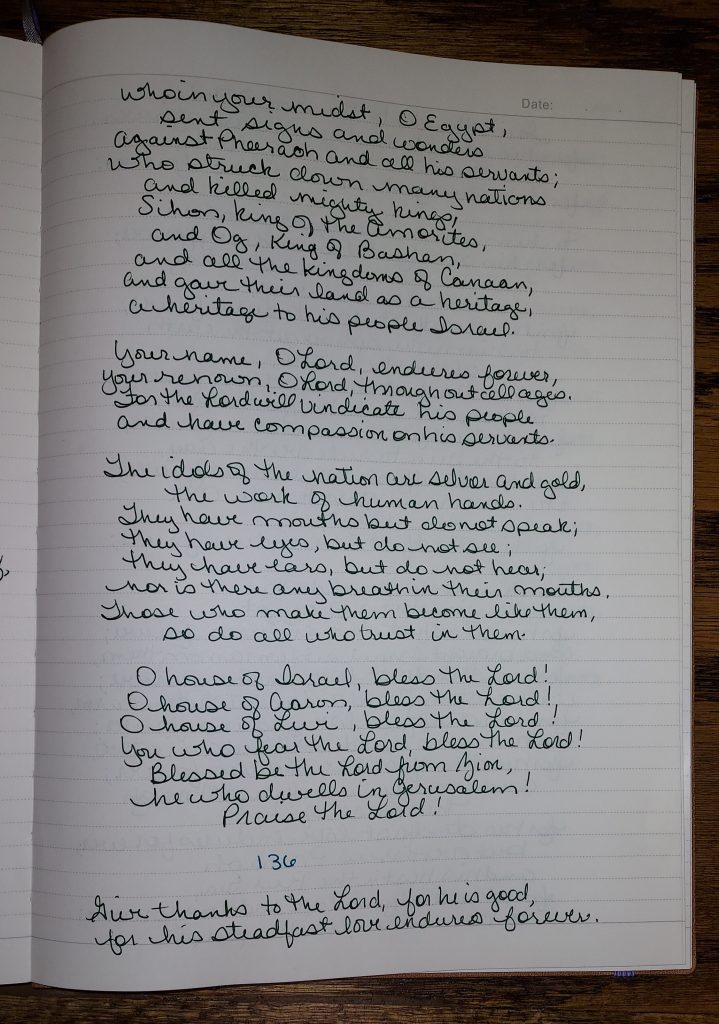 Date:
who in your midst, O Egypt,
sent signs and wonders
against Pharaoh and all his servants;
who struck down many nations
and killed mighty kings,
Sihon, king of the Amorites,
and Og, King of Bashan,
and all the kingdoms of Canaan,
and gave their land as a heritage,
a heritage to his people Israel.
Your name, O Lord, endures forever,
your renown, O Lord, throughout all ages.
For the Lord will vindicate his people
and have compassion on his servants.
The idols of the nation are silver and gold,
the work of human hands.
They have mouths but do not speak;
they have eyes, but do not see;
they have ears, but do not hear;
nor is there any breath in their mouths.
Those who make them become like them,
so do all who trust in them.
O house of Israel, bless the Lord!
O house of Aaron, bless the Lord!
O house of Levi, bless the Lord!
You who fear the Lord, bless the Lord!
Blessed be the Lord from Zion,
he who dwells in Jerusalem!
Praise the Lord!
136
Give thanks to the Lord, for he is good,
for his steadfast love endures forever.